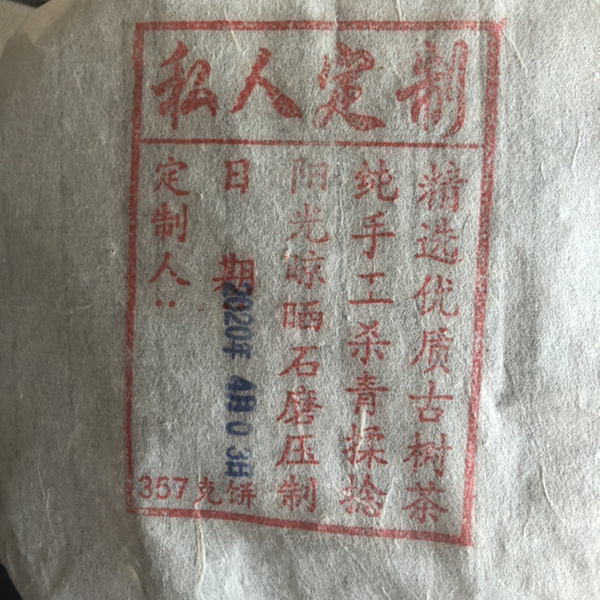 私人定制
精选优质古树茶
纯手工杀青揉捻
阳光晾晒石磨压制
日期
2020年 4月 03日
定制人:
357克饼